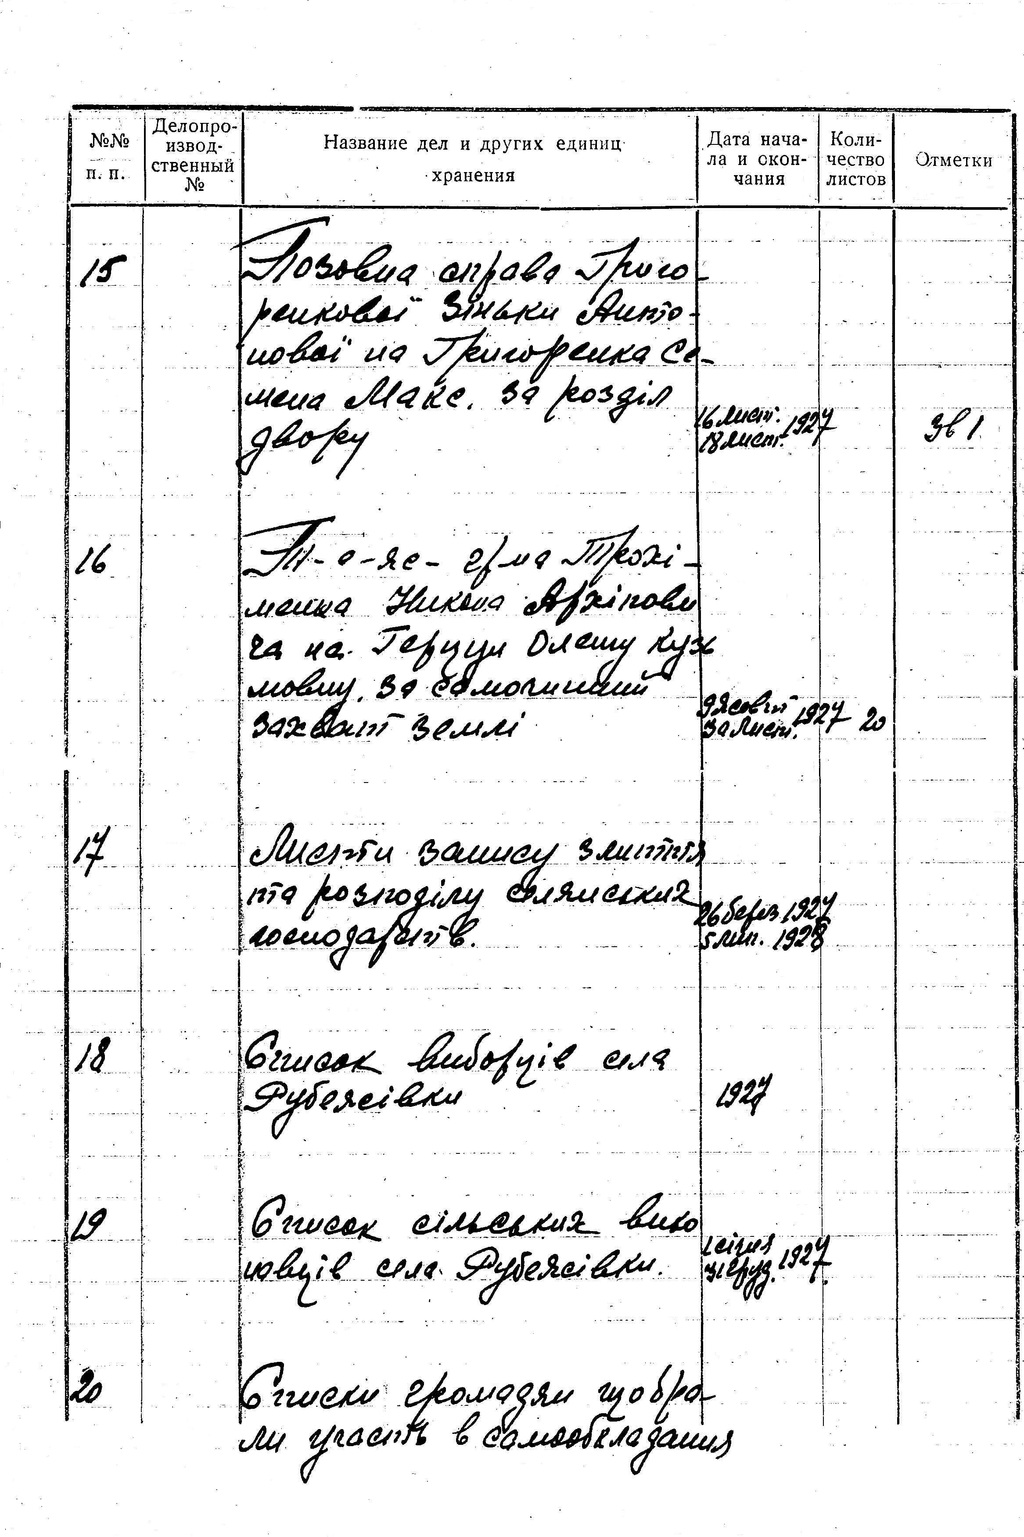 №№ п. п.
Делопро-
извод-
ственный
№
Название дел и других единиц
хранения
Дата нача-
ла и окон-
чания
Коли-
чество
листов
Отметки
15
Позовна справа Григо-
ренкової Зіньки Анто-
нової на Григоренка Се-
мена Макс. за розділ
двору
16 лист. 1927
18 лист.
Зв 1
16
Т-а-яс- гр-на Трохі-
менка Никона Архіпови
ча на Герцун Олешу Кузь
мовну, за самочинний
захват землі
9 жовтн 1927
30 лист.
20
17
Листи запису злиття
та розподілу селянських
господарств.
26 берез 1927
5 лип. 1928
18
Список виборців села
Рубежівки
1927
19
Список сільських вико
навців села Рубежівки.
1 січня 1927
31 груд.
20
Списки громадян що бра-
ли участь в самообкладання